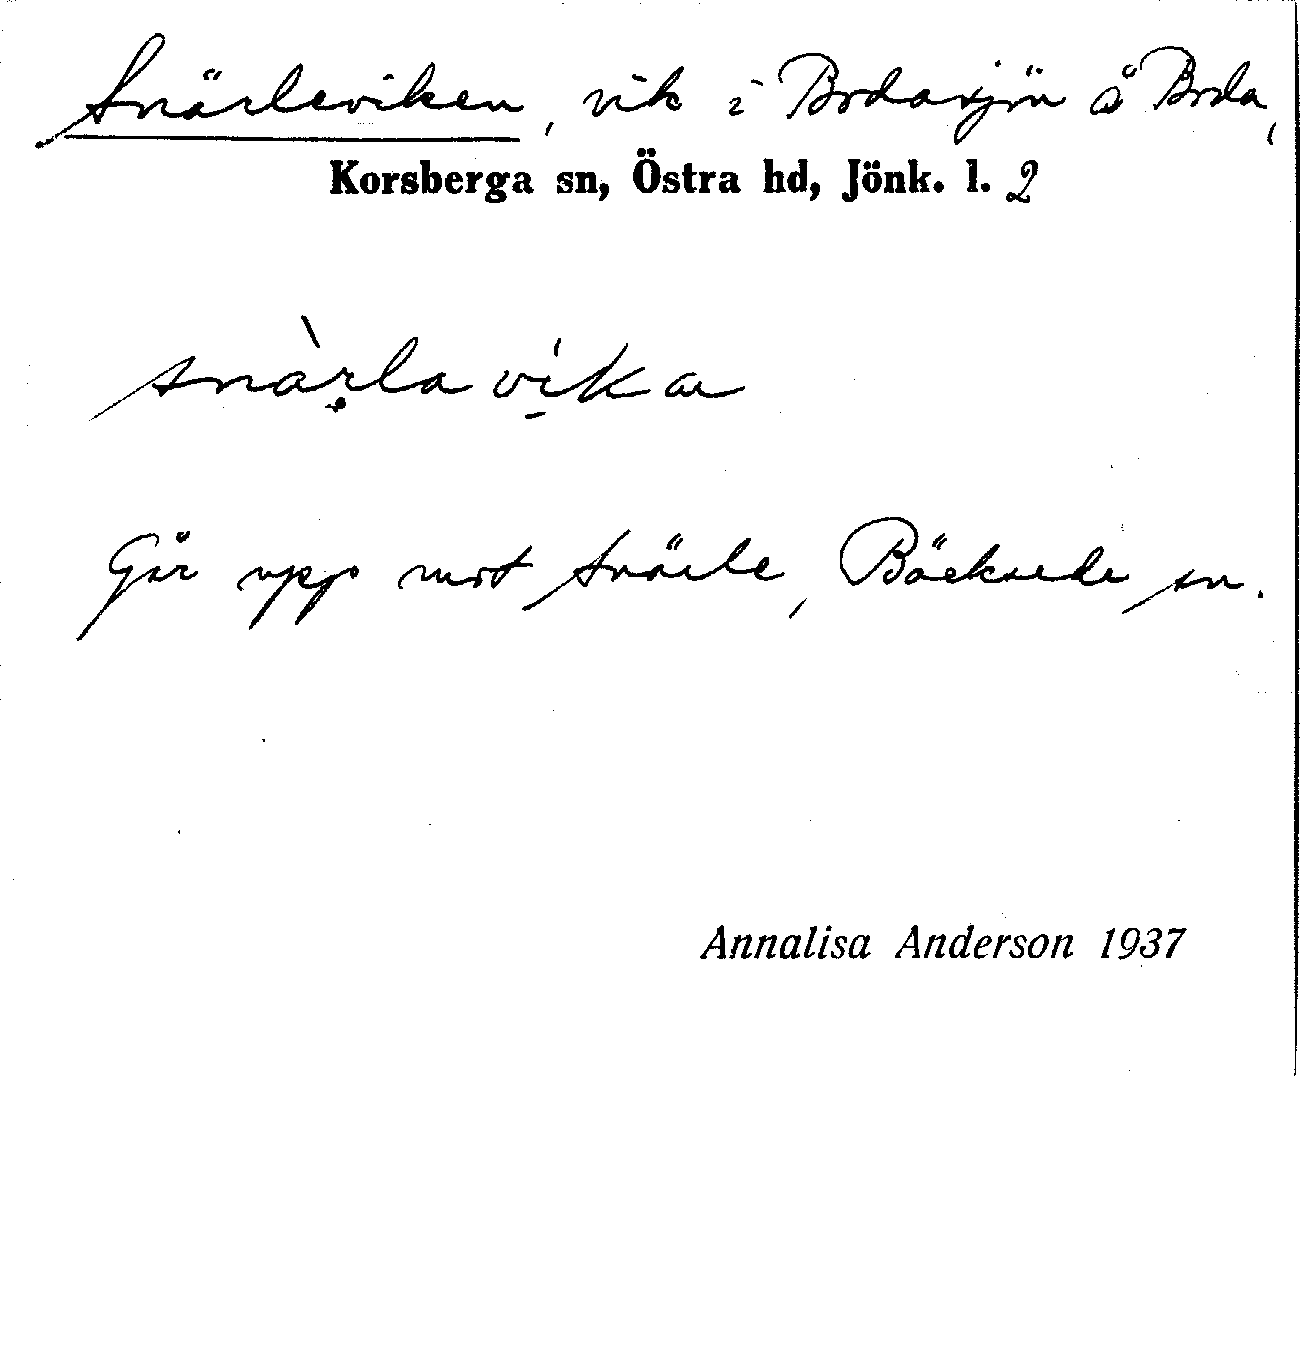 Snärleviken, vik i Bodasjön å Boda,
Korsberga sn, Östra hd, Jönk. l. 2
snàrla víka
Går upp mot Snärle, Bäckseda sn.
Annalisa Anderson 1937